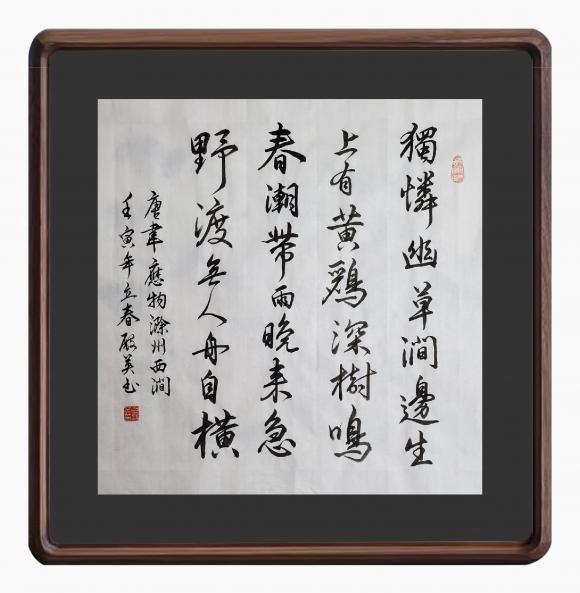 獨憐幽草澗邊生
上有黄鸝深樹鳴
春潮带雨晚来急
野渡無人舟自横
唐韋應物滁州西澗
壬寅年立春殷英书